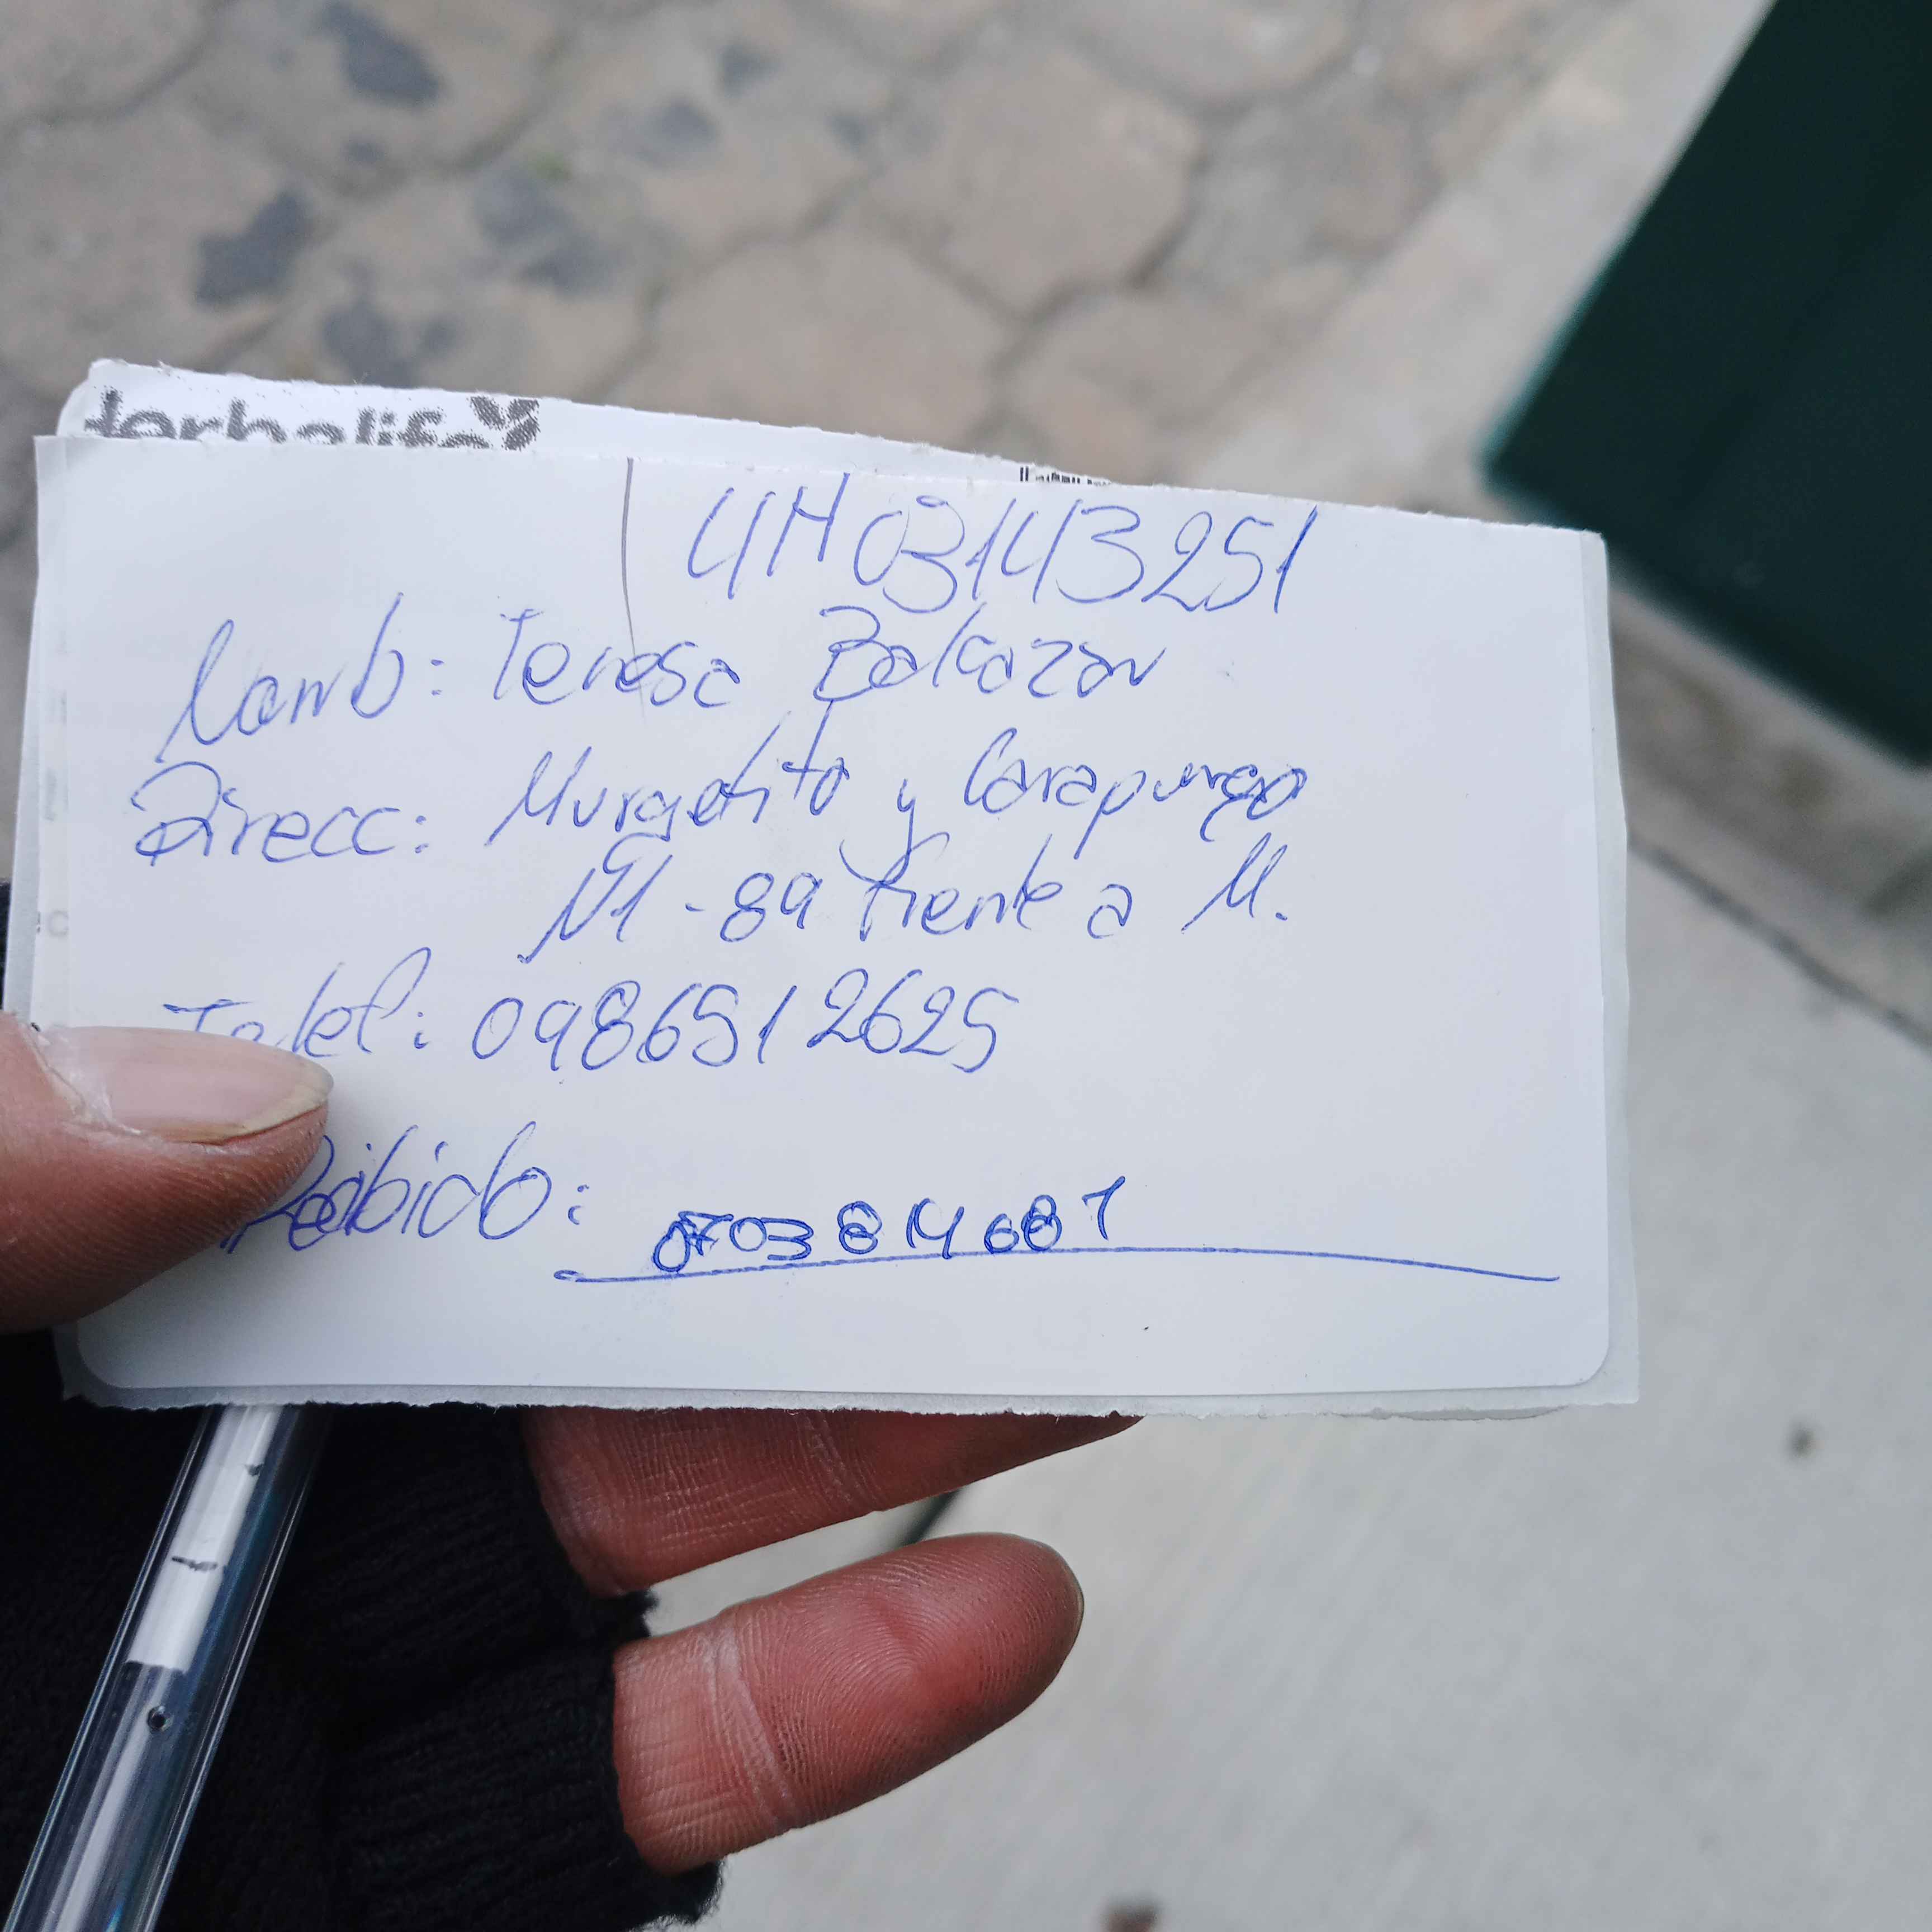 Herbalife
4H03143251
Nomb: Teresa Balcazar
Direcc: Murgehito y Carapungo
N1-89 frente a M.
Telef: 0986512625
Recibido: 0703814687